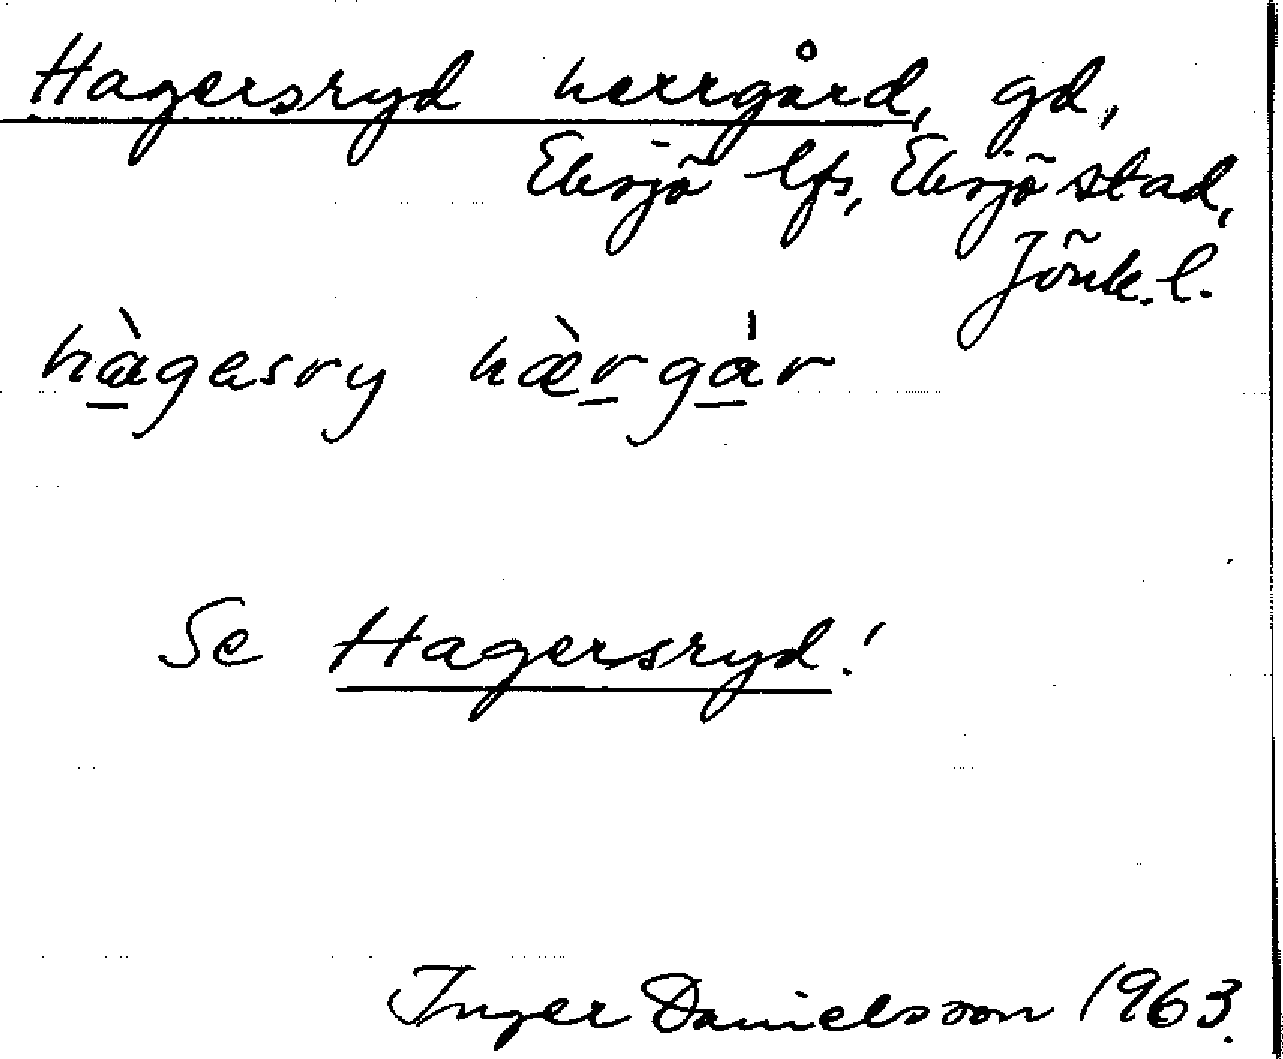 Hagersryd herrgård, gd,
Eksjö lfs, Eksjö stad,
Jönk. l.
hàgesry hærgår
Se Hagersryd!
Inger Danielsson 1963.